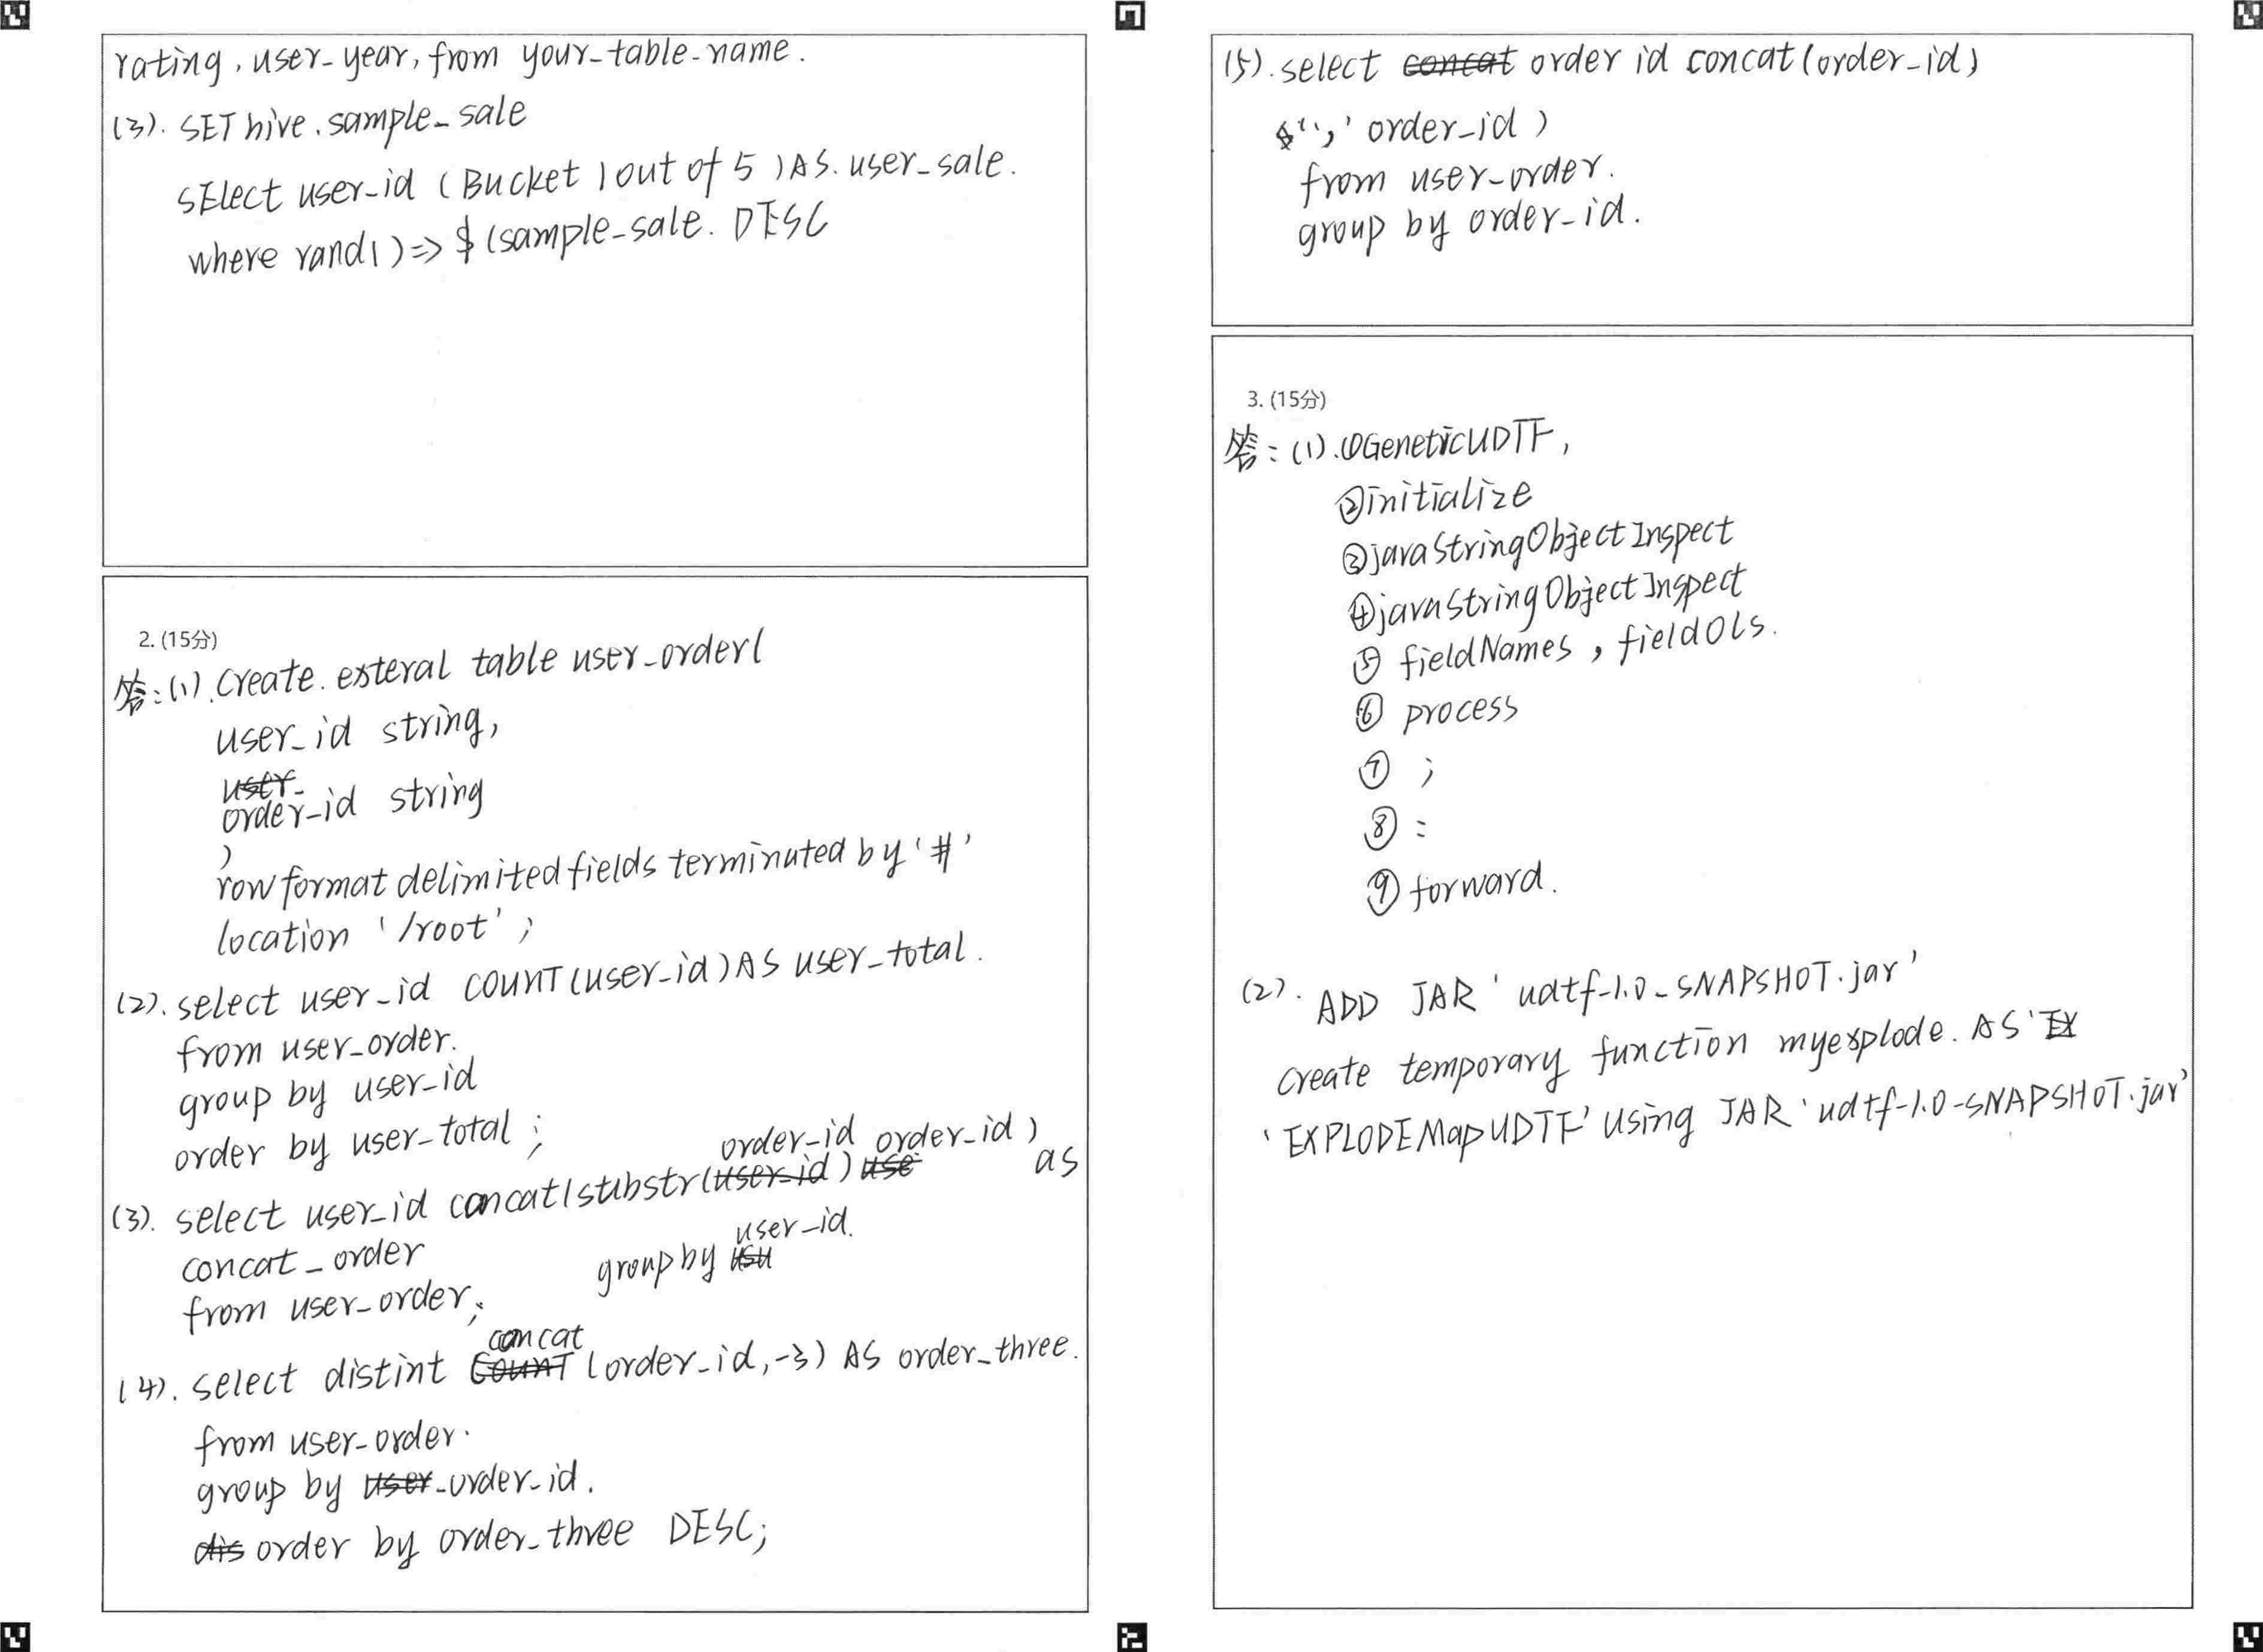 rating, user_year, from your_table_name.
(3). SET hive.sample_sale
SElect user_id (Bucket 1 out of 5) AS. user_sale.
where rand() => $(sample_sale. DESC
2. (15分)
答:(1). Create. exteral table user_order(
user_id string,
user_
order_id string
)
row format delimited fields terminated by '#'
location '/root';
(2). select user_id COUNT(user_id) AS user_total.
from user_order.
group by user_id
order by user_total;
(3). select user_id concat(substr(user_id) use order_id order_id) as
concat_order
from user_order; group by usu user_id.
(4). select distint COUNT concat (order_id,-3) AS order_three.
from user_order.
group by user_order_id.
dis order by order_three DESC;
(5). select concat order id concat(order_id)
',' order_id)
from user_order.
group by order_id.
3. (15分)
答:(1).①GeneticUDTF,
②initialize
③javaStringObjectInspect
④javaStringObjectInspect
⑤ fieldNames, fieldOls.
⑥ process
⑦ ;
⑧ :
⑨ forward.
(2). ADD JAR 'udtf-1.0-SNAPSHOT.jar'
create temporary function myexplode. AS 'EX
'EXPLODEMapUDTF' Using JAR 'udtf-1.0-SNAPSHOT.jar'